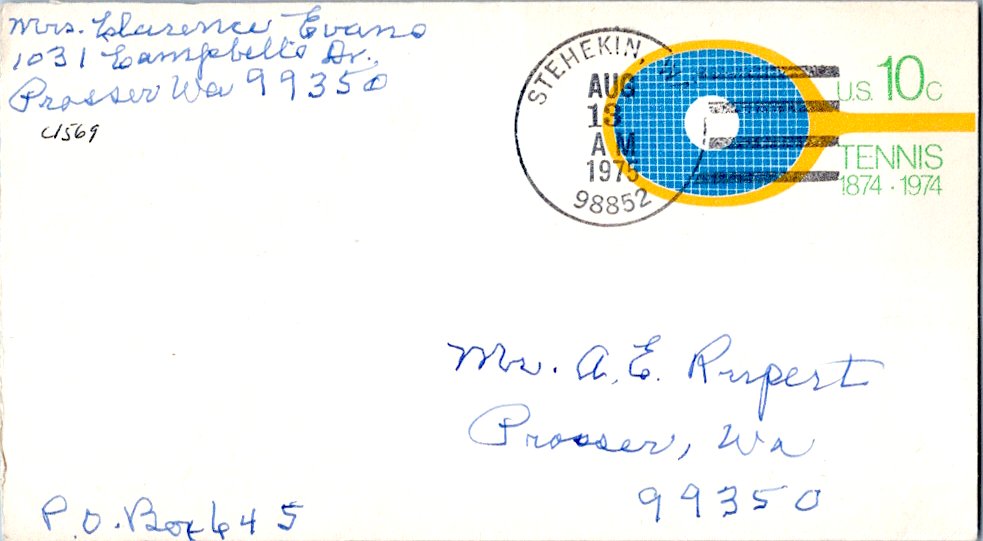 Mrs. Clarence Evans
1031 Campbells Dr.
Prosser Wa 99350
C1569
STEHEKIN, W
AUG
13
AM
1975
98852
U.S. 10c
TENNIS
1874 · 1974
Mr. A. E. Rupert
Prosser, Wa
99350
P.O. Box 645